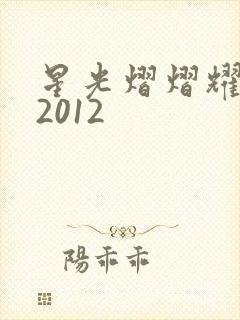 星光熠熠耀
2012
陽乖乖